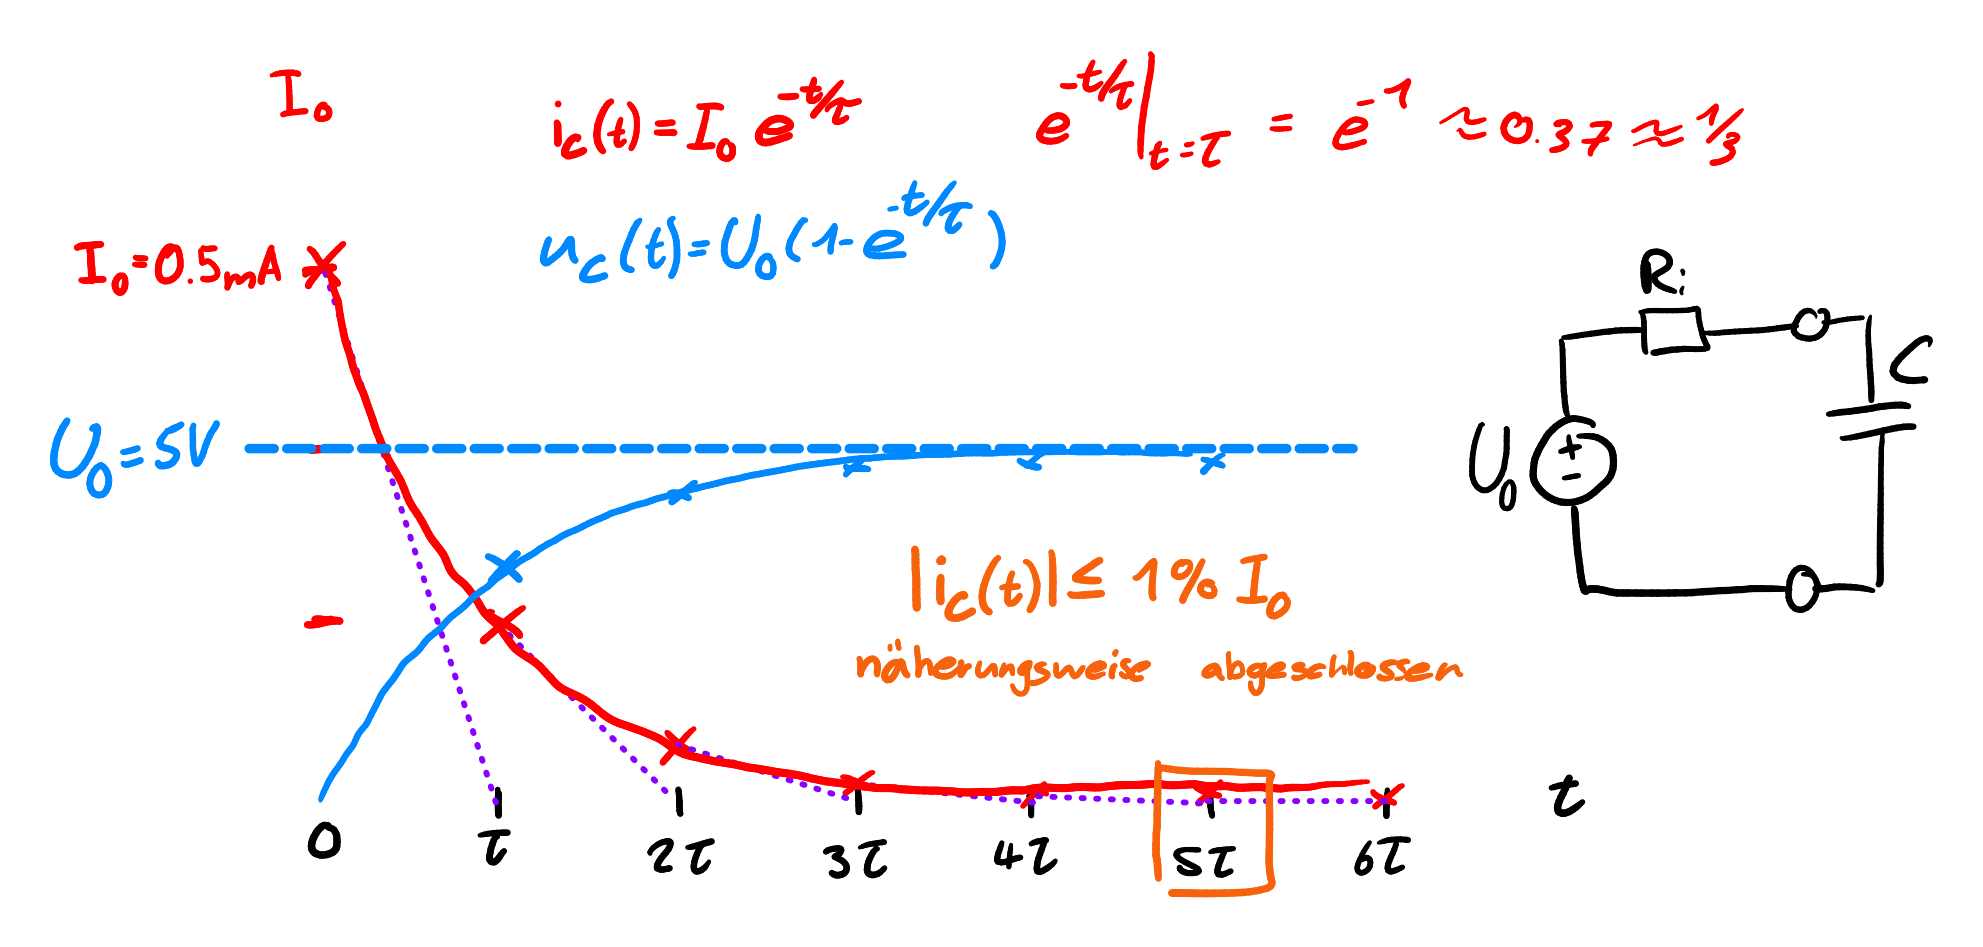 I₀
i_c(t) = I₀ e^(-t/τ)
e^(-t/τ)|_(t=τ) = e^(-1) ≈ 0.37 ≈ 1/3
u_c(t) = U₀ (1 - e^(-t/τ))
I₀ = 0.5mA
R_i
C
U₀ = 5V
U₀
+
-
|i_c(t)| ≤ 1% I₀
näherungsweise abgeschlossen
t
0 τ 2τ 3τ 4τ 5τ 6τ